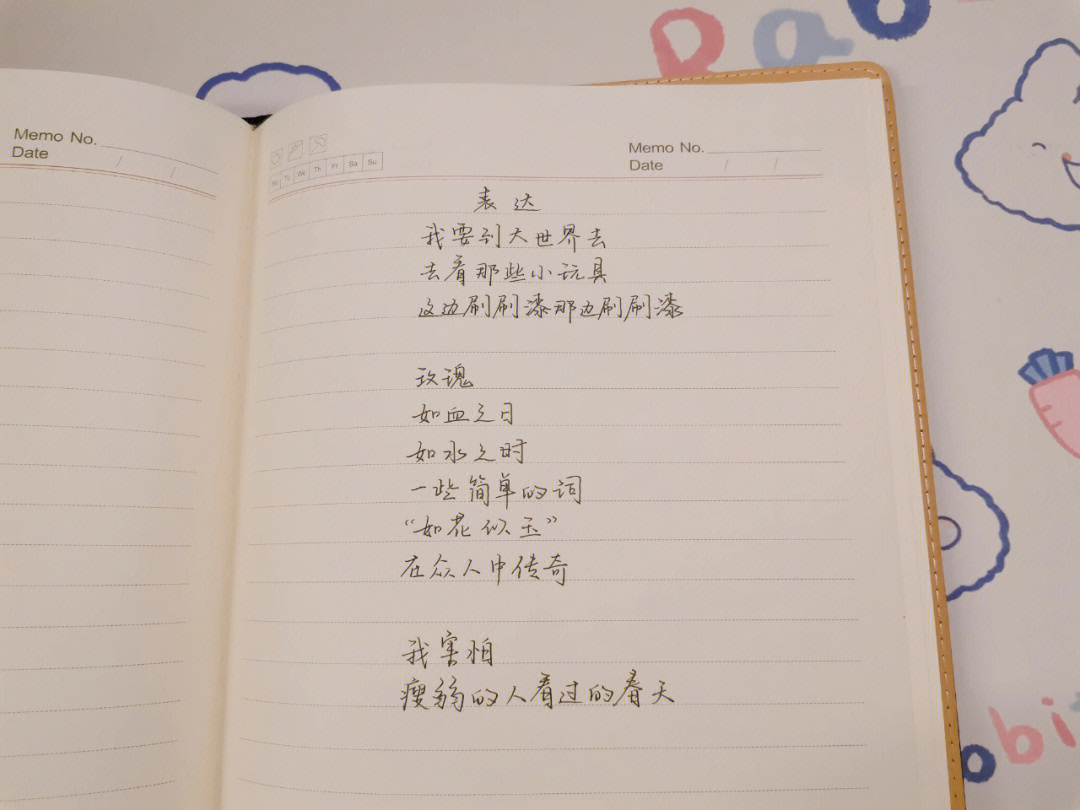 Memo No.
Date / /
Mo Tu We Th Fr Sa Su
Memo No.
Date / /
表达
我要到大世界去
去看那些小玩具
这边刷刷漆那边刷刷漆
玫瑰
如血之日
如水之时
一些简单的词
“如花似玉”
在众人中传奇
我害怕
瘦弱的人看过的春天